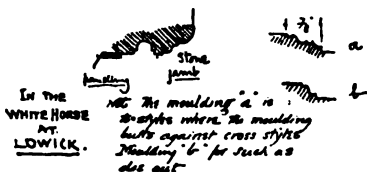 7/8"
a
Stone
jamb
panelling
b
IN THE
WHITE HORSE
AT
LOWICK.
The moulding "a" is
to styles where the moulding
butts against cross styles
Moulding "b" for such as
die out